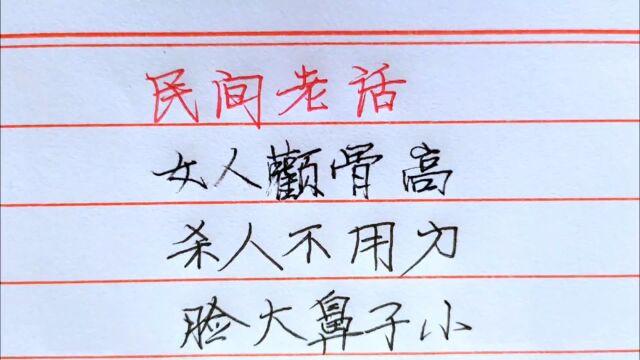 民间老话
女人颧骨高
杀人不用刀
脸大鼻子小